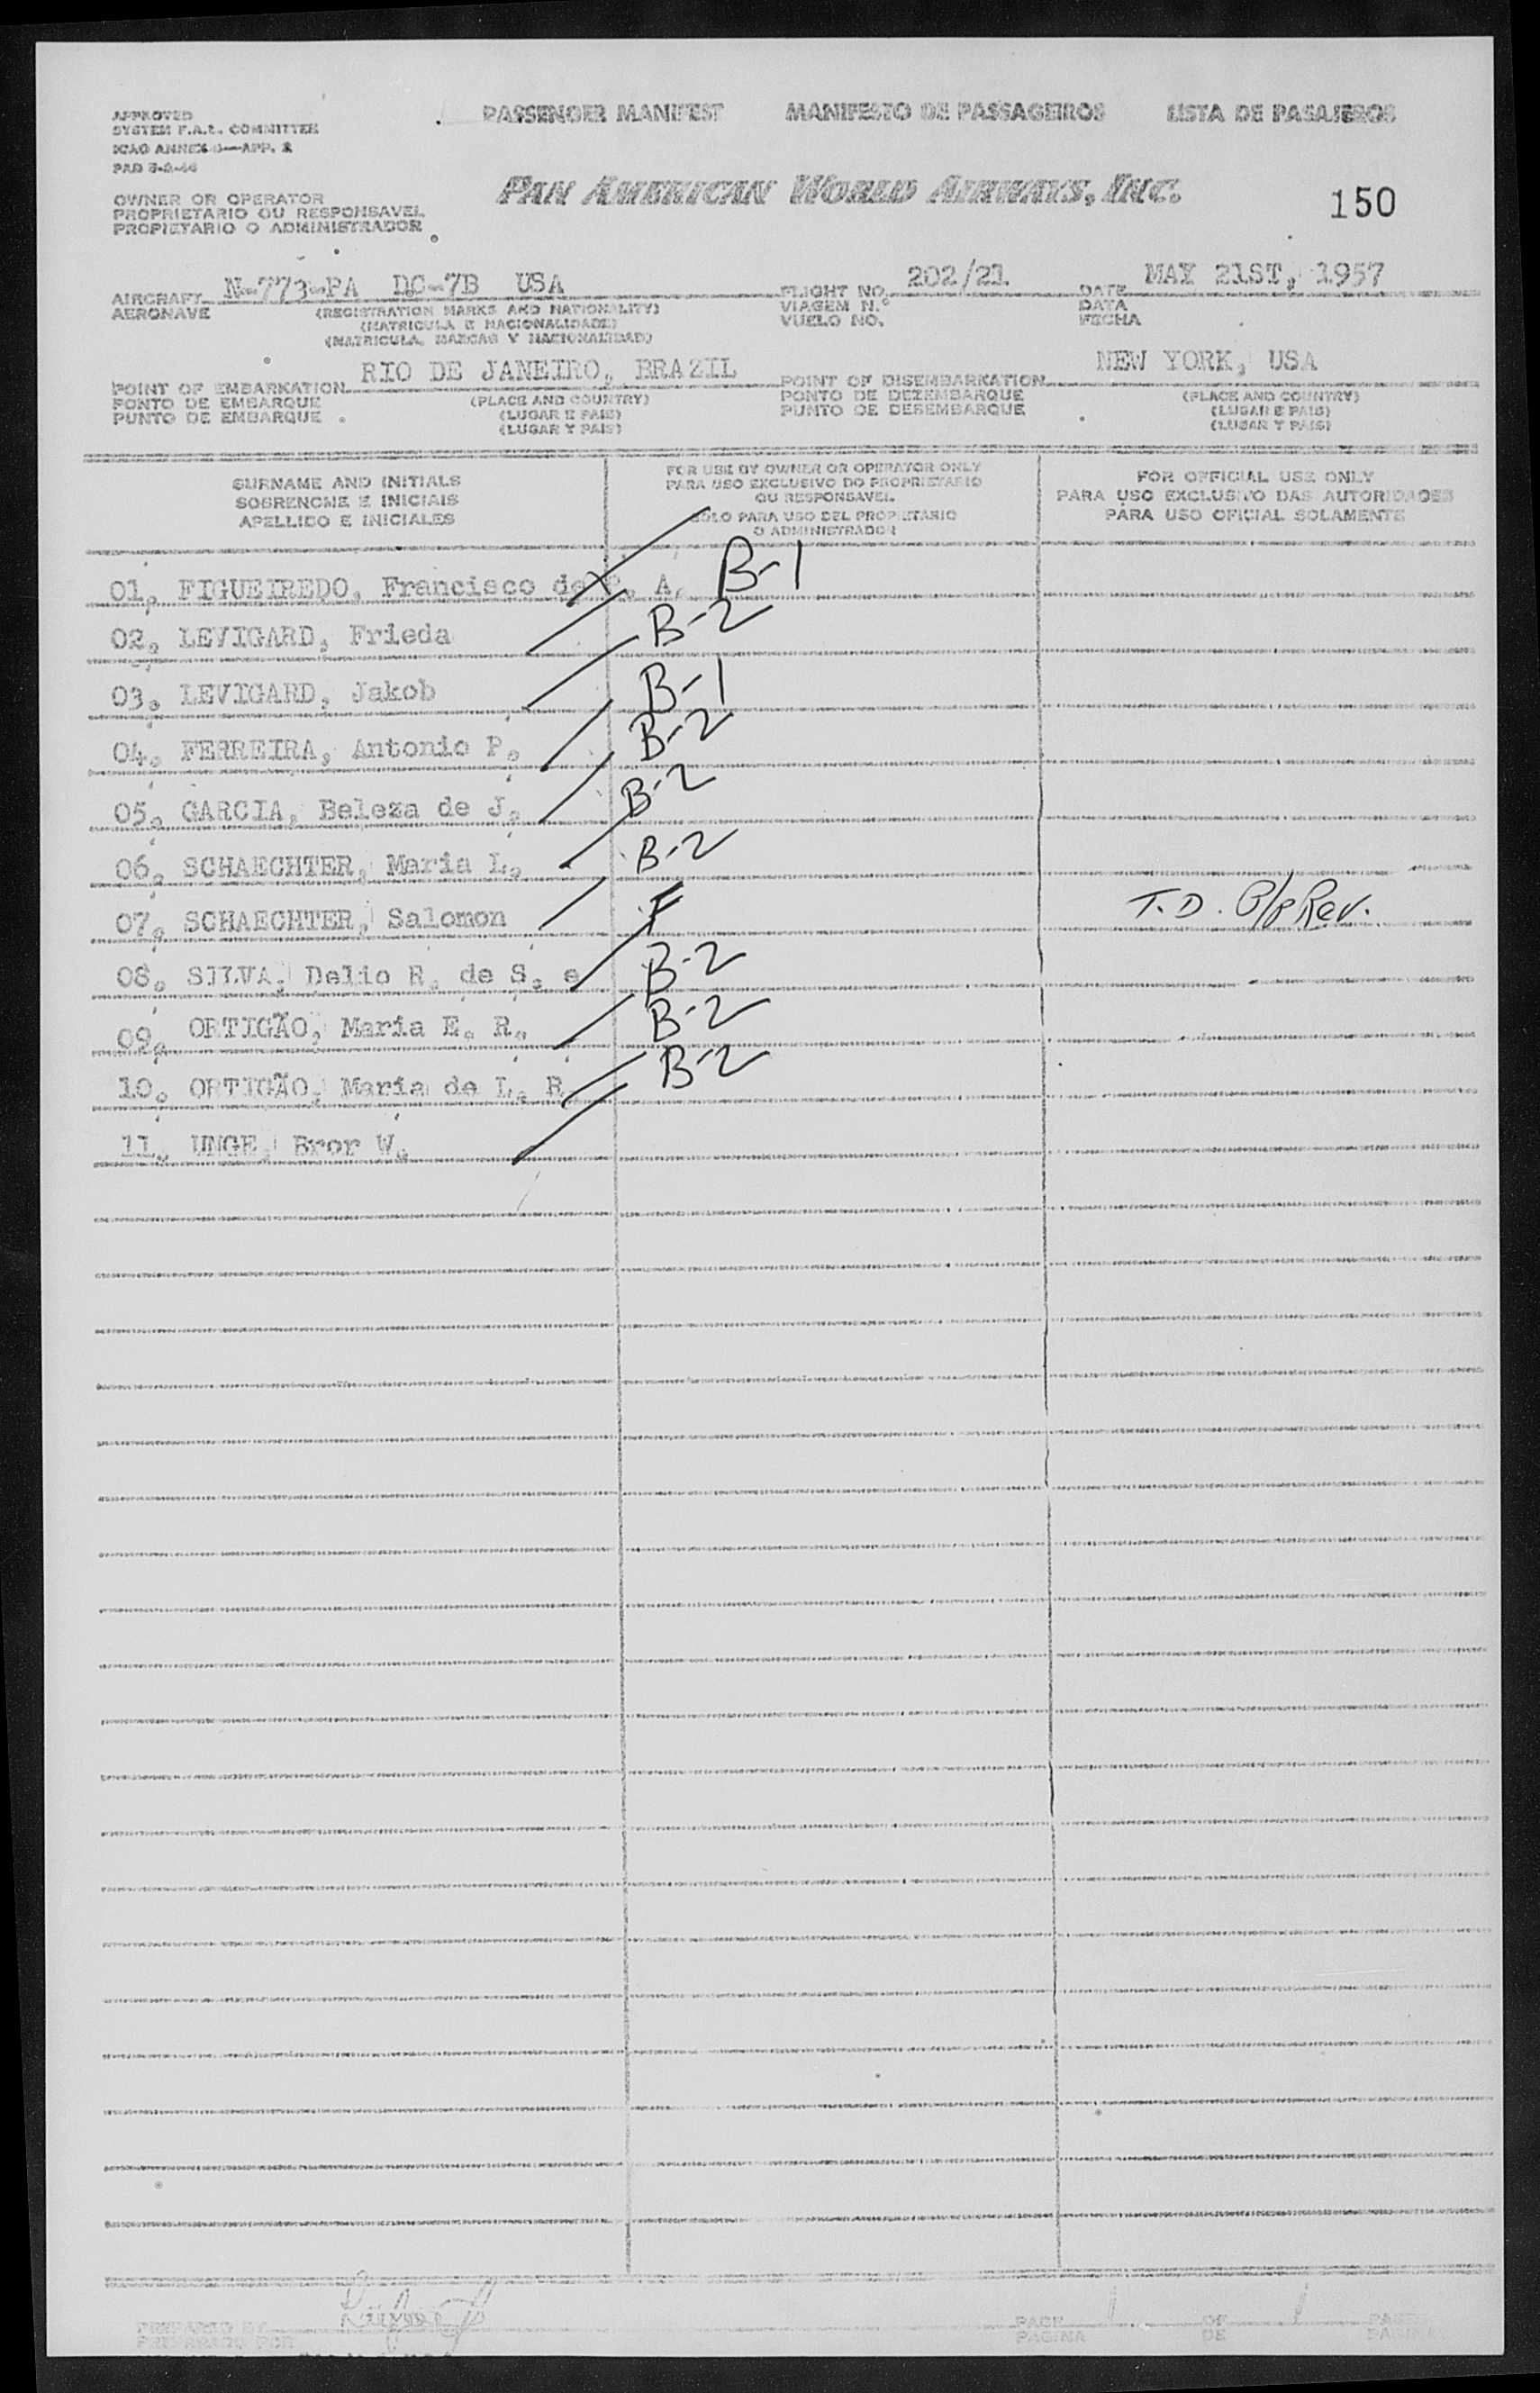 APPROVED
SYSTEM F.A.L. COMMITTEE
ICAO ANNEX 9—APP. 2
PASSENGER MANIFEST MANIFESTO DE PASSAGEIROS LISTA DE PASAJEROS
OWNER OR OPERATOR
PROPRIETARIO OU RESPONSAVEL
PROPIETARIO O ADMINISTRADOR
PAN AMERICAN WORLD AIRWAYS, INC.
150
AIRCRAFT N-773-PA DC-7B USA FLIGHT NO. 202/21 DATE MAY 21ST, 1957
AERONAVE (REGISTRATION MARKS AND NATIONALITY) VIAGEM N.º DATA
(MATRICULA E NACIONALIDADE) VUELO NO. FECHA
(MATRICULA, MARCAS Y NACIONALIDAD)
POINT OF EMBARKATION RIO DE JANEIRO, BRAZIL POINT OF DISEMBARKATION NEW YORK, USA
PONTO DE EMBARQUE (PLACE AND COUNTRY) PONTO DE DEZEMBARQUE (PLACE AND COUNTRY)
PUNTO DE EMBARQUE (LUGAR E PAIS) PUNTO DE DESEMBARQUE (LUGAR E PAIS)
(LUGAR Y PAIS) (LUGAR Y PAIS)
SURNAME AND INITIALS
SOBRENOME E INICIAIS
APELLIDO E INICIALES
FOR USE BY OWNER OR OPERATOR ONLY
PARA USO EXCLUSIVO DO PROPRIETARIO
OU RESPONSAVEL
SOLO PARA USO DEL PROPIETARIO
O ADMINISTRADOR
FOR OFFICIAL USE ONLY
PARA USO EXCLUSIVO DAS AUTORIDADES
PARA USO OFICIAL SOLAMENTE
01. FIGUEIREDO, Francisco de P. A. B-1
02. LEVIGARD, Frieda B-2
03. LEVIGARD, Jakob B-1
04. FERREIRA, Antonio P. B-2
05. GARCIA, Beleza de J. B-2
06. SCHAECHTER, Maria L. B-2
07. SCHAECHTER, Salomon F T.D. P/P Rev.
08. SILVA, Delio R. de S. e B-2
09. ORTIGÃO, Maria E. R. B-2
10. ORTIGÃO, Maria de L. R. B-2
11. UNGE, Bror W.
PREPARED BY PAGE 1 OF 1 PAGES
PREPARADO POR PAGINA DE